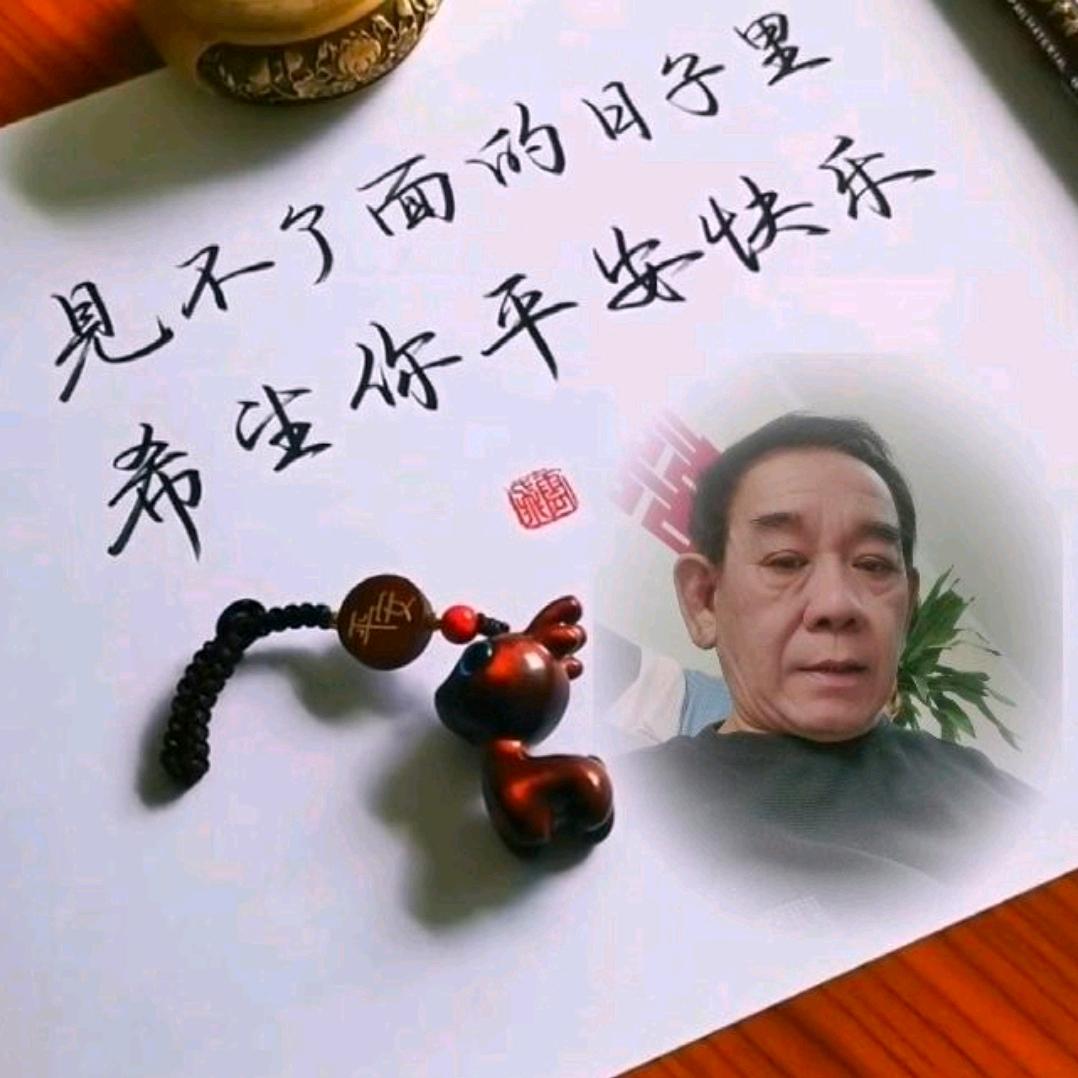 見不了面的日子里
希望你平安快乐
平安
囍